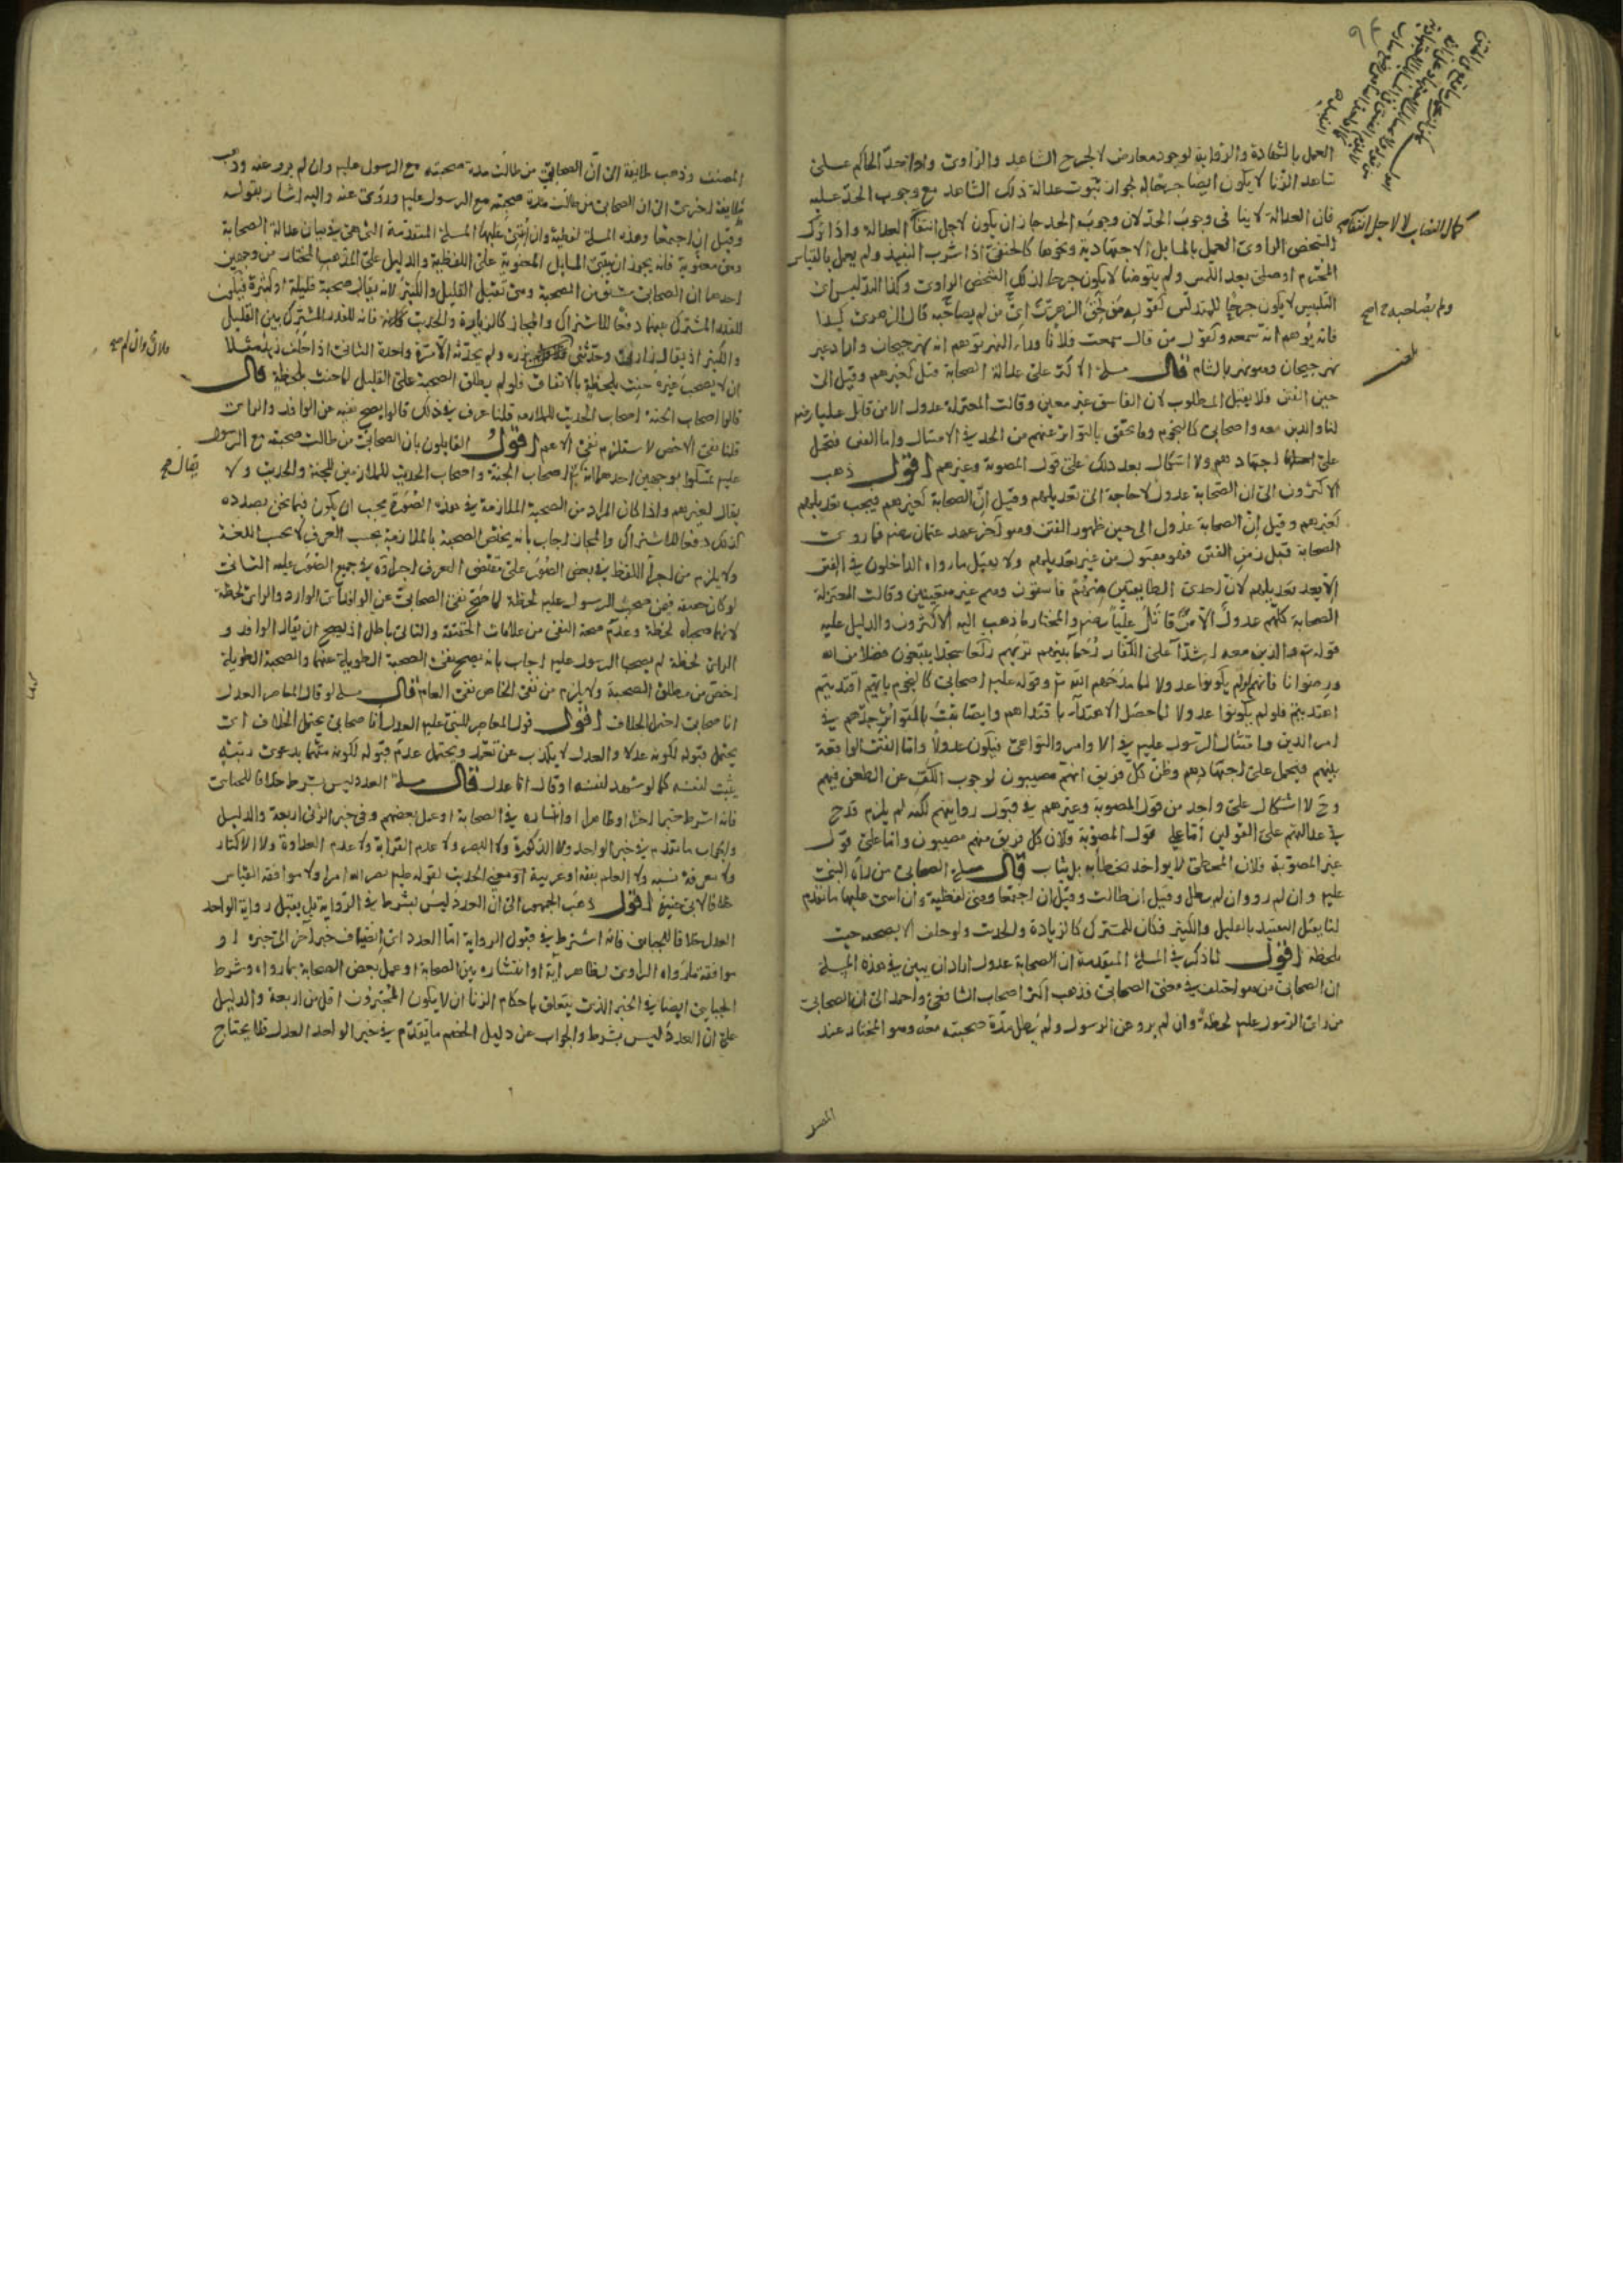 العمل بالشهادة والرواية لوجود معارض لا لجرح الشاهد والراوى واذا حدّ الحاكم على
شاهد الزنا لا يكون ايضا جرحا له لجواز ثبوت عدالة ذلك الشاهد مع وجوب الحد عليه
فان العدالة لا ينافى وجوب الحد لان وجوب الحد جاز ان يكون لاجل انتفاء العدالة واذا ترك
الشخص الراوى العمل بالمسايل الاجتهادية ونحوها كالحنفى اذا شرب النبيذ ولم يعمل بالقياس
المحرم او صلى بعد اللمس ولم يتوضا لا يكون جرحا لذلك الشخص الراوى وكذا التدليس اى
التلبيس لا يكون جرحا للمدلس كقوله من لحق الزهرى اى من لم يصاحبه قال الزهرى كذا
فانه يوهم انه سمعه وكقول من قال سمعت فلانا وراء النهر توهم انه نهر جيحان واراد غير
نهر جيحان وهو نهر بالشام قال مسلة الاكثر على عدالة الصحابة وقيل كغيرهم وقيل الى
حين الفتن فلا يقبل المطلوب لان الفاسق غير معين وقالت المعتزلة عدول الا من قاتل عليا رضه
لنا والذين معه واصحابى كالنجوم وما تحقق بالتواتر عنهم من الجد فى الامتثال واما الفتن فتحمل
على اجتهادهم ولا اشكال بعد ذلك على قول المصوبة وغيرهم اقول ذهب
الاكثرون الى ان الصحابة عدول لا حاجة الى تعديلهم وقيل ان الصحابة كغيرهم فيجب تعديلهم
كغيرهم وقيل ان الصحابة عدول الى حين ظهور الفتن وهو آخر عهد عثمان رضه فما روت
الصحابة قبل زمن الفتن فهو مقبول من غير تعديلهم ولا يقبل ما رواه الداخلون فى الفتن
الا بعد تعديلهم لان احدى الطايفتين منهم فاسقون وهم غير متعينين وقالت المعتزلة
الصحابة كلهم عدول الا من قاتل عليا رضه والمختار ما ذهب اليه الاكثرون والدليل عليه
قوله تع والذين معه اشداء على الكفار رحماء بينهم تريهم ركعا سجدا يبتغون فضلا من الله
ورضوانا فانهم لو لم يكونوا عدولا لما مدحهم الله تع وقوله عليه اصحابى كالنجوم بايهم اقتديتم
اهتديتم فلو لم يكونوا عدولا لما حصل الاهتداء باقتداهم وايضا ثبت بالتواتر جدهم فى
امر الدين وامتثال الرسول عليه فى الاوامر والنواهى فيكون عدولا واما الفتن الواقعة
بينهم فيحمل على اجتهادهم وظن كل فريق انهم مصيبون لوجوب الكف عن الطعن فيهم
وح لا اشكال على واحد من قول المصوبة وغيرهم فى قبول روايتهم لكنه لم يلزم قدح
فى عدالتهم على القولين اما على قول المصوبة فلان كل فريق منهم مصيبون واما على قول
غير المصوبة فلان المخطى لا يواخذ بخطأه بل يثاب قال مسلة الصحابى من رأه النبى
عليه وان لم يرو وان لم يطل وقيل ان طالت وقيل ان اجتمعا وهى لفظية وان ابتنى عليها ما تقدم
لنا يقبل التقييد بالقليل والكثير فكان للمشترك كالزيارة والحديث ولو حلف الا يصحبه حنث
بلحظة اقول لما ذكر فى المسلة المتقدمة ان الصحابة عدول اراد ان يبين فى هذه المسلة
ان الصحابى من هو اختلف فى معنى الصحابى فذهب اكثر اصحاب الشافعى واحمد الى ان الصحابى
من راى الرسول عليه لحظة وان لم يرو عن الرسول ولم يطل مدة صحبته معه وهو المختار عند
المصنف
المصنف وذهب طايفة الى ان الصحابى من طالت مدة صحبته مع الرسول عليه وان لم يرو عنه وذهب
طايفة اخرى الى ان الصحابى من طالت مدة صحبته مع الرسول عليه وروى عنه واليه اشار بقوله
وقيل ان اجتمعا وهذه المسلة لفظية وان ابتنى عليها المسلة المتقدمة التى هى فى بيان عدالة الصحابة
وهى معنوية فانه يجوز ان يبتنى المسايل المعنوية على اللفظية والدليل على المذهب المختار من وجهين
احدهما ان الصحابى مشتق من الصحبة وهى تقبل القليل والكثير لانه يقال صحبة قليلة او كثيرة فيكون
للقدر المشترك بينهما دفعا للاشتراك والمجاز كالزيارة والحديث فانه للقدر المشترك بين القليل
والكثير اذ يقال زارنى وحدثنى ولم يحدثه الا مرة واحدة الثانى اذا حلف زيد مثلا
ان لا يصحب غيره حنث بلحظة بالاتفاق فلو لم يطلق الصحبة على القليل لما حنث بلحظة قال
قالوا اصحاب الجنة اصحاب الحديث للملازمة قلنا عرف فى ذلك قالوا يصح نفيه عن الوافد والرائى
قلنا نفى الاخص لا يستلزم نفى الاعم اقول القايلون بان الصحابى من طالت صحبته مع الرسول
عليه تمسكوا بوجهين احدهما انه اصحاب الجنة واصحاب الحديث للملازمين للجنة والحديث ولا
يقال لغيرهم واذا كان المراد من الصحبة الملازمة فى هذه الصورة يجب ان يكون فيما نحن بصدده
كذلك دفعا للاشتراك والمجاز اجاب بانه يختص الصحبة بالملازمة بحسب العرف لا بحسب اللغة
ولا يلزم من اجراء اللفظ فى بعض الصور على مقتضى العرف اجراؤه فى جميع الصور عليه الثانى
لو كان حقيقة فيمن صحب الرسول عليه لحظة لما صح نفى الصحابى عن الوافد والرائى لحظة
لانهما صحباه لحظة وعدم صحة النفى من علامات الحقيقة والتالى باطل اذ يصح ان يقال الوافد و
الرائى لحظة لم يصحب الرسول عليه اجاب بانه يصح نفى الصحبة الطويلة عنهما والصحبة الطويلة
اخص من مطلق الصحبة ولا يلزم من نفى الخاص نفى العام قال مسلة لو قال المعاصر العدل
انا صحابى احتمل الخلاف اقول قول المعاصر للنبى عليه العدل انا صحابى يحتمل الخلاف اى
يحتمل قبوله لكونه عدلا والعدل لا يكذب عن تعمد ويحتمل عدم قبوله لكونه متهما بدعوى رتبة
يثبت لنفسه كما لو شهد لنفسه او قال انا عدل قال مسلة العدد ليس بشرط خلافا للجبائى
فانه اشترط خبرا اخر او ظاهرا او انتشاره فى الصحابة او عمل بعضهم وفى خبر الزنى اربعة والدليل
والجواب ما تقدم فى خبر الواحد ولا الذكورة ولا البصر ولا عدم القرابة ولا عدم العداوة ولا الاكثار
ولا معرفة نسبه ولا العلم بفقه او عربية او معنى الحديث لقوله عليه نضر الله امرا ولا موافقة القياس
خلافا لابى حنيفة اقول ذهب الجمهور الى ان العدد ليس بشرط فى الرواية بل يقبل رواية الواحد
العدل خلافا للجبائى فانه اشترط فى قبول الرواية اما العدد اى انضياف خبر آخر الى خبره او
موافقة ما رواه الراوى لظاهر آية او انتشاره بين الصحابة او عمل بعض الصحابة بما رواه وشرط
الجبائى ايضا فى الخبر الذى يتعلق باحكام الزنا ان لا يكون المخبرون اقل من اربعة والدليل
على ان العدد ليس بشرط والجواب عن دليل الخصم ما تقدم فى خبر الواحد العدل فلا يحتاج